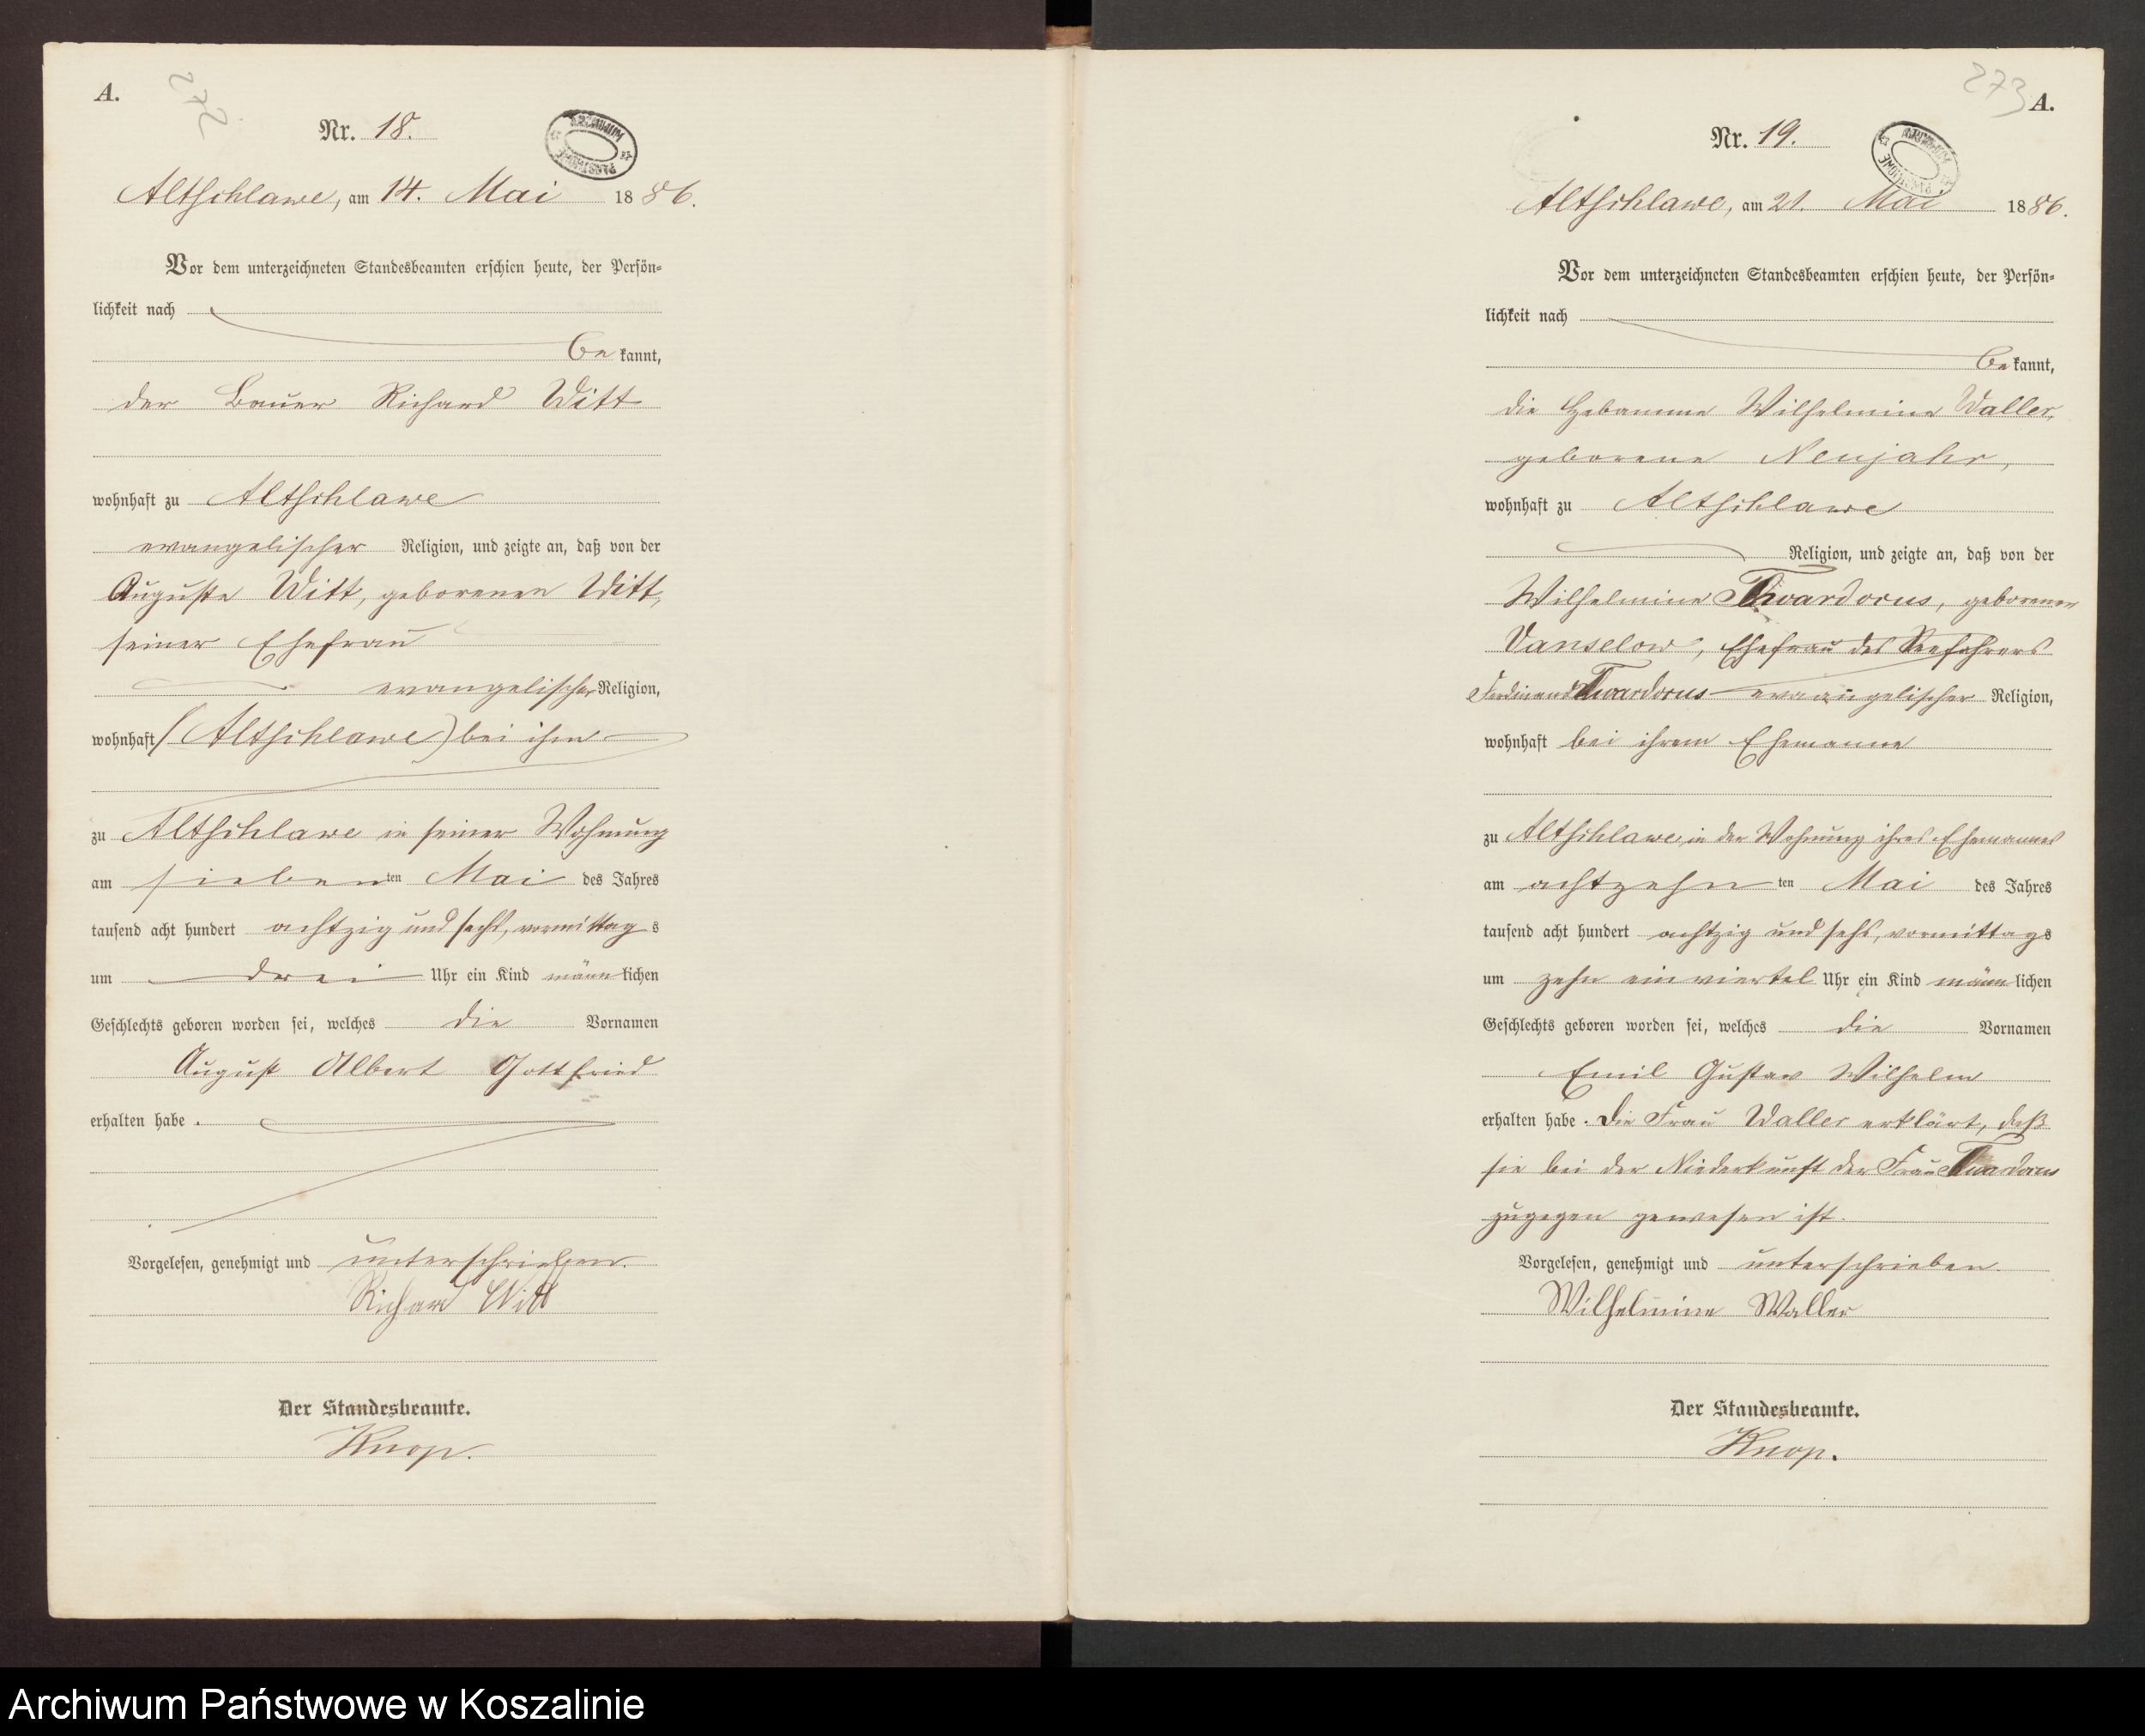 A.
272
Nr. 18.
Altschlawe, am 14. Mai 1886.
Vor dem unterzeichneten Standesbeamten erschien heute, der Persön-
lichkeit nach
be kannt,
der Bauer Richard Witt
wohnhaft zu Altschlawe
evangelischer Religion, und zeigte an, daß von der
Auguste Witt, geborenen Witt,
seiner Ehefrau
evangelischer Religion,
wohnhaft (Altschlawe) bei ihm
zu Altschlawe in seiner Wohnung
am sieben ten Mai des Jahres
tausend acht hundert achtzig und sechs, vormittag s
um drei Uhr ein Kind männ lichen
Geschlechts geboren worden sei, welches die Vornamen
August Albert Gottfried
erhalten habe.
Vorgelesen, genehmigt und unterschrieben.
Richard Witt
Der Standesbeamte.
Knop.
273
A.
Nr. 19.
Altschlawe, am 21. Mai 1886.
Vor dem unterzeichneten Standesbeamten erschien heute, der Persön-
lichkeit nach
be kannt,
die Hebamme Wilhelmine Waller,
geborene Neujahr,
wohnhaft zu Altschlawe
Religion, und zeigte an, daß von der
Wilhelmine Twardocus, geborenen
Vanselow, Ehefrau des Seefahrers
Ferdinand Twardocus evangelischer Religion,
wohnhaft bei ihrem Ehemanne
zu Altschlawe, in der Wohnung ihres Ehemannes
am achtzehn ten Mai des Jahres
tausend acht hundert achtzig und sechs, vormittags
um zehn ein viertel Uhr ein Kind männ lichen
Geschlechts geboren worden sei, welches die Vornamen
Emil Gustav Wilhelm
erhalten habe. Die Frau Waller erklärt, daß
sie bei der Niederkunft der Frau
zugegen gewesen ist.
Vorgelesen, genehmigt und unterschrieben
Wilhelmine Waller
Der Standesbeamte.
Knop.
Archiwum Państwowe w Koszalinie